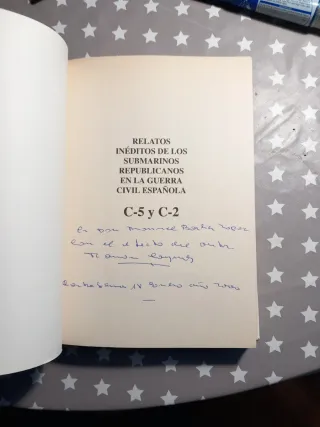 RELATOS
INÉDITOS DE LOS
SUBMARINOS
REPUBLICANOS
EN LA GUERRA
CIVIL ESPAÑOLA
C-5 y C-2
Manuel
Con el afecto del autor
Ramón
Cartagena 18 enero año